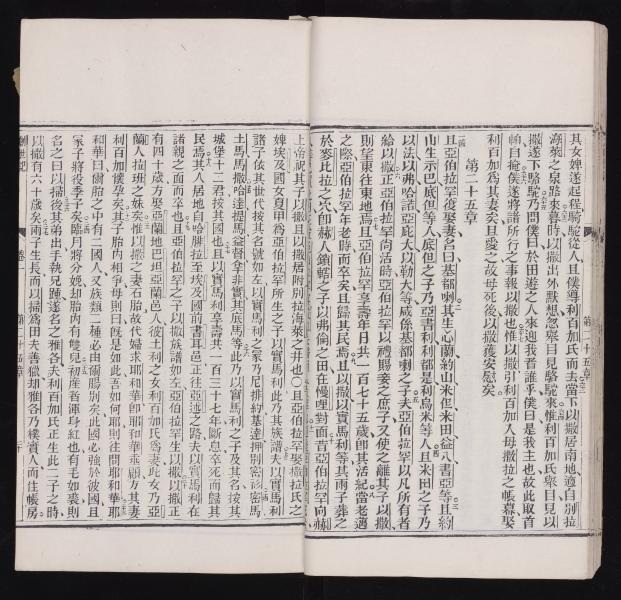 其女婢遂起程騎駱駝從人且僕導利百加氏而去當下以撒居南地適自別拉
海萊之泉路來暮時以撒出外默想忽舉目見駱駝來惟利百加氏舉目見以
撒遂下駱駝乃問僕曰於田遊之人來迎我者誰乎僕曰是我主也故此取首
帕自掩僕遂將諸所行之事報以撒也惟以撒引利百加入母撒拉之帳幕娶
利百加爲其妻矣且愛之故母死後以撒獲安慰矣
第二十五章
且亞伯拉罕復娶妻名曰基都喇其生心蘭約山米但米田益八書亞等且約
山生示巴底但等人底但之子乃亞書利利都是利烏米等人且米田之子乃
以法以弗哈諾亞庇大以勒大等咸係基都喇之子夫亞伯拉罕以凡所有者
給以撒正亞伯拉罕尚活時亞伯拉罕以禮賜妾之庶子又使之離其子以撒
則望東往東地焉且亞伯拉罕享壽年日共一百七十五歲卽其活紀當老邁
之際亞伯拉罕年老時而卒矣且歸其民焉且以撒以實馬利等其兩子葬之
於麥比拉之穴卽赫人鎖轄之子以弗倫之田在慢哩對面昔亞伯拉罕向赫
上帝祝其子以撒且以撒居附別拉海萊之井也〇且亞伯拉罕娶撒拉氏之
婢埃及國女夏甲爲亞伯拉罕所生之子以實馬利此乃其族譜夫以實馬利
諸子依其世代按其名號如左以實馬利之冢乃尼排約基達押別密衫密馬
土馬馬撒哈達提馬益督拿非實其底馬等此乃以實馬利之子及其名按其
城堡十二君按其國也且以實馬利享壽共一百三十七年斷息卒死而歸其
民焉其人居地自哈腓拉至埃及國前書耳邑正往亞述之路夫以實馬利在
諸親之面而卒也且亞伯拉罕之子以撒族譜如左亞伯拉罕生以撒以撒正
有四十歲方娶亞蘭地巴坦亞蘭邑人彼土利之女利百加氏爲妻此女乃亞
蘭人拉班之妹矣惟以撒之妻石胎故代婦求耶和華卽耶和華垂顧方其妻
利百加懷孕矣其子胎內相爭母則曰旣是如此吾如何耶則往問耶和華耶
和華曰爾胎之中有二國人又族類二種必由爾腸別矣此國必強於彼國且
冢子將役季子矣臨月將分娩却胎內有雙兒初產者渾身紅也有毛如裘則
名之曰以掃後其弟出手執兄踵遂名之雅各夫利百加氏正生此二子之時
以撒有六十歲矣兩子生長而以掃爲田夫善獵却雅各乃樸實人而住帳房
創世歷
卷一
第二十五章